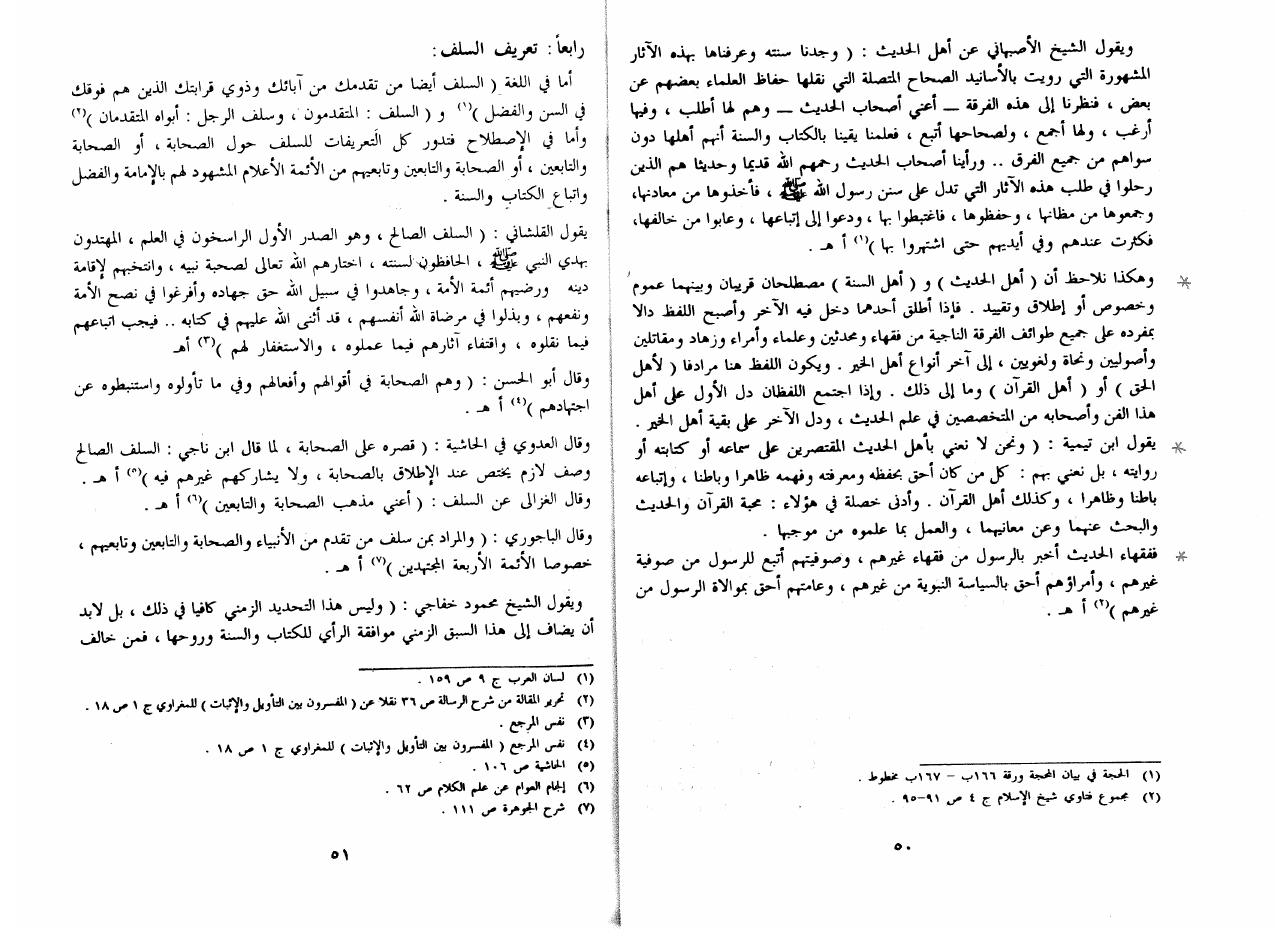 ويقول الشيخ الأصبهاني عن أهل الحديث : ( وجدنا سنته وعرفناها بهذه الآثار
المشهورة التي رويت بالأسانيد الصحاح المتصلة التي نقلها حفاظ العلماء بعضهم عن
بعض ، فنظرنا إلى هذه الفرقة ــ أعني أصحاب الحديث ــ وهم لها أطلب ، وفيها
أرغب ، ولها أجمع ، ولصحاحها أتبع ، فعلمنا يقينا بالكتاب والسنة أنهم أهلها دون
سواهم من جميع الفرق .. ورأينا أصحاب الحديث رحمهم الله قديما وحديثا هم الذين
رحلوا في طلب هذه الآثار التي تدل على سنن رسول الله ﷺ ، فأخذوها من معادنها،
وجمعوها من مظانها ، وحفظوها ، فاغتبطوا بها ، ودعوا إلى إتباعها ، وعابوا من خالفها،
فكثرت عندهم وفي أيديهم حتى اشتهروا بها )(١) أ هـ .
* وهكذا نلاحظ أن ( أهل الحديث ) و ( أهل السنة ) مصطلحان قريبان وبينهما عموم
وخصوص أو إطلاق وتقييد . فإذا أطلق أحدهما دخل فيه الآخر وأصبح اللفظ دالا
بمفرده على جميع طوائف الفرقة الناجية من فقهاء ومحدثين وعلماء وأمراء وزهاد ومقاتلين
وأصوليين ونحاة ولغويين ، إلى آخر أنواع أهل الخير . ويكون اللفظ هنا مرادفا ( لأهل
الحق ) أو ( أهل القرآن ) وما إلى ذلك . وإذا اجتمع اللفظان دل الأول على أهل
هذا الفن وأصحابه من المتخصصين في علم الحديث ، ودل الآخر على بقية أهل الخير .
* يقول ابن تيمية : ( ونحن لا نعني بأهل الحديث المقتصرين على سماعه أو كتابته أو
روايته ، بل نعني بهم : كل من كان أحق بحفظه ومعرفته وفهمه ظاهرا وباطنا ، وإتباعه
باطنا وظاهرا ، وكذلك أهل القرآن . وأدنى خصلة في هؤلاء : محبة القرآن والحديث
والبحث عنهما وعن معانيهما ، والعمل بما علموه من موجبها .
* ففقهاء الحديث أخبر بالرسول من فقهاء غيرهم ، وصوفيتهم أتبع للرسول من صوفية
غيرهم ، وأمراؤهم أحق بالسياسة النبوية من غيرهم ، وعامتهم أحق بموالاة الرسول من
غيرهم )(٢) أ هـ .
(١) الحجة في بيان المحجة ورقة ١٦٦ب – ١٦٧ب مخطوط .
(٢) مجموع فتاوي شيخ الإسلام ج ٤ ص ٩١–٩٥ .
٥٠
رابعاً: تعريف السلف:
أما في اللغة ( السلف أيضا من تقدمك من آبائك وذوي قرابتك الذين هم فوقك
في السن والفضل )(١) و ( السلف : المتقدمون ، وسلف الرجل : أبواه المتقدمان )(٢)
وأما في الإصطلاح فتدور كل التعريفات للسلف حول الصحابة ، أو الصحابة
والتابعين ، أو الصحابة والتابعين وتابعيهم من الأئمة الأعلام المشهود لهم بالإمامة والفضل
واتباع الكتاب والسنة .
يقول القلشاني : ( السلف الصالح ، وهو الصدر الأول الراسخون في العلم ، المهتدون
بهدي النبي ﷺ ، الحافظون لسنته ، اختارهم الله تعالى لصحبة نبيه ، وانتخبهم لإقامة
دينه ورضيهم أئمة الأمة ، وجاهدوا في سبيل الله حق جهاده وأفرغوا في نصح الأمة
ونفعهم ، وبذلوا في مرضاة الله أنفسهم ، قد أثنى الله عليهم في كتابه .. فيجب اتباعهم
فيما نقلوه ، واقتفاء آثارهم فيما عملوه ، والاستغفار لهم )(٣) أهـ
وقال أبو الحسن : ( وهم الصحابة في أقوالهم وأفعالهم وفي ما تأولوه واستنبطوه عن
اجتهادهم )(٤) أ هـ .
وقال العدوي في الحاشية : ( قصره على الصحابة ، لما قال ابن ناجي : السلف الصالح
وصف لازم يختص عند الإطلاق بالصحابة ، ولا يشاركهم غيرهم فيه )(٥) أ هـ .
وقال الغزالى عن السلف : ( أعني مذهب الصحابة والتابعين )(٦) أ هـ .
وقال الباجوري : ( والمراد بمن سلف من تقدم من الأنبياء والصحابة والتابعين وتابعيهم ،
خصوصا الأئمة الأربعة المجتهدين )(٧) أ هـ .
ويقول الشيخ محمود خفاجي : ( وليس هذا التحديد الزمني كافيا في ذلك ، بل لابد
أن يضاف إلى هذا السبق الزمني موافقة الرأي للكتاب والسنة وروحها ، فمن خالف
(١) لسان العرب ج ٩ ص ١٥٩ .
(٢) تحرير المقالة من شرح الرسالة ص ٣٦ نقلا عن ( المفسرون بين التأويل والإثبات ) للمغراوي ج ١ ص ١٨ .
(٣) نفس المرجع .
(٤) نفس المرجع ( المفسرون بين التأويل والإثبات ) للمغراوي ج ١ ص ١٨ .
(٥) الحاشية ص ١٠٦ .
(٦) إلجام العوام عن علم الكلام ص ٦٢ .
(٧) شرح الجوهرة ص ١١١ .
٥١